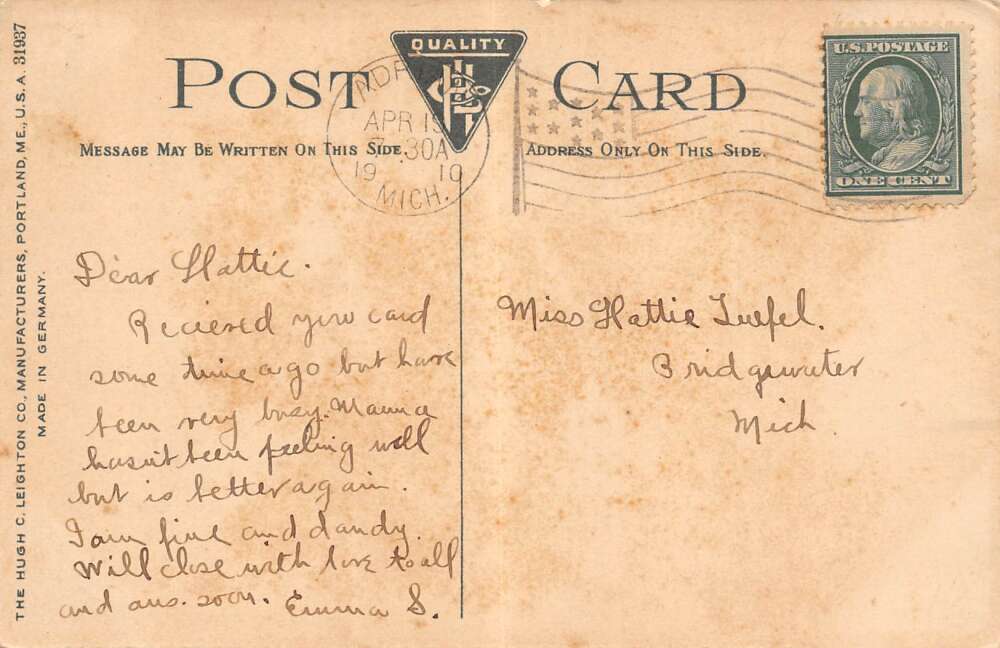 THE HUGH C. LEIGHTON CO., MANUFACTURERS, PORTLAND, ME., U.S.A. 31937
MADE IN GERMANY.
POST CARD
QUALITY
MESSAGE MAY BE WRITTEN ON THIS SIDE.
ADDRESS ONLY ON THIS SIDE.
APR 19
30A
19 10
MICH.
U.S. POSTAGE
ONE CENT
Dear Hattie.
Recieved your card
some time ago but have
been very busy. Mama
hasn't been feeling well
but is better again.
I am fine and dandy.
Will close with love to all
and ans. soon. Emma S.
Miss Hattie Tuefel.
Bridgewater
Mich